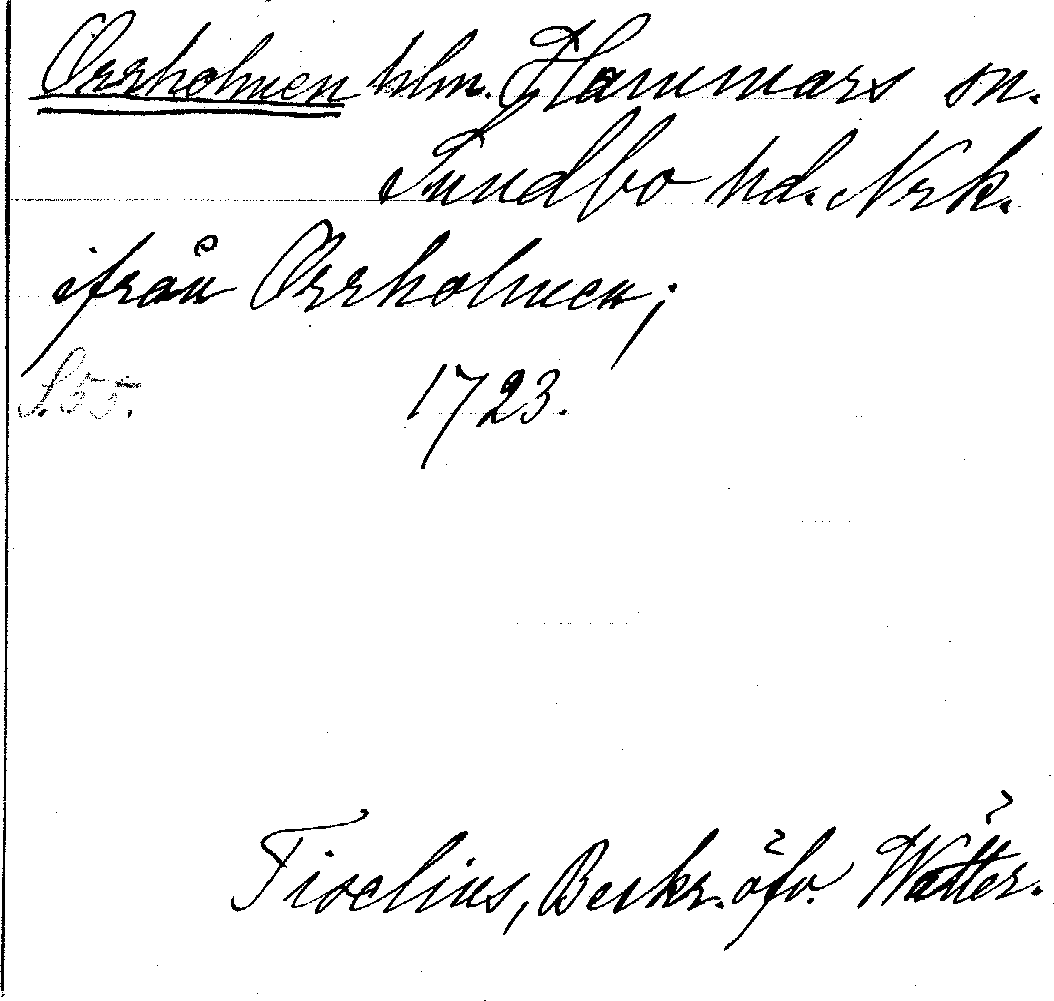 Orrholmen hlm. Hammars sn.
Sundbo hd. Nrk.
ifrån Orrholmen;
S. 55. 1723.
Tiselius, Beskr. öfv. Wätter.